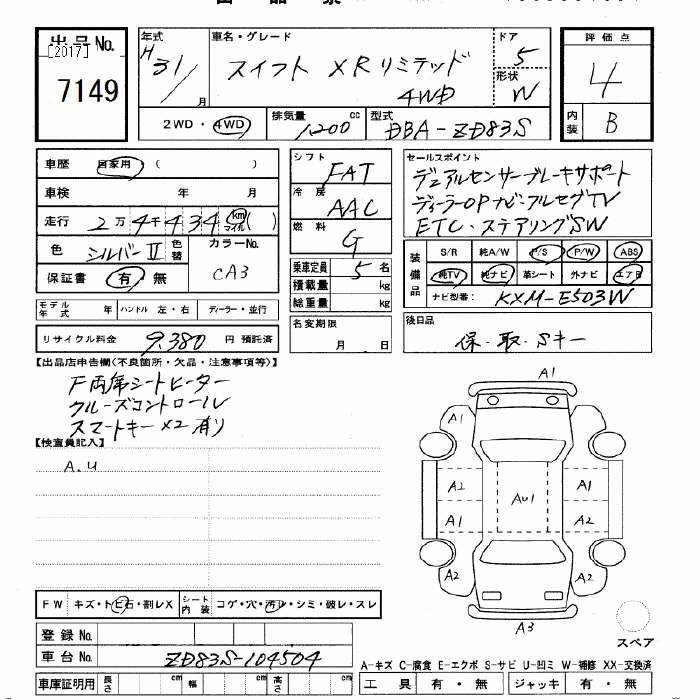 出品No.
[2017]
7149
年式 H31/ 月
車名・グレード スイフト XRリミテッド 4WD
ドア 5
形状 W
評価点 4
内装 B
2WD・4WD
排気量 1,200 cc
型式 DBA-ZD83S
車歴 自家用 ( )
車検 年 月
走行 2万4千434 km マイル ( )
色 シルバーII 色替
カラーNo. CA3
保証書 有・無
シフト FAT
冷房 AAC
燃料 G
乗車定員 5名
積載量 kg
総重量 kg
セールスポイント
デュアルセンサーブレーキサポート
ディーラーOPナビ・フルセグTV
ETC・ステアリングSW
装備品 S/R 純A/W P/S P/W ABS
純TV 純ナビ 革シート 外ナビ エアB
ナビ型番: KXM-E503W
モデル年式 年 ハンドル 左・右 ディーラー・並行
リサイクル料金 9,380 円 預託済
名変期限 月 日
後日品 保・取・Sキー
【出品店申告欄(不良箇所・欠品・注意事項等)】
F両席シートヒーター
クルーズコントロール
スマートキー×2有り
【検査員記入】
A.U
A1
A1 A1
A2 A1
AU1
A1 A2
A2 A2
A3
スペア
FW キズ・トビ石・割レX シート内装 コゲ・穴・汚レ・シミ・破レ・スレ
登録No.
車台No. ZD83S-104504
A-キズ C-腐食 E-エクボ S-サビ U-凹ミ W-補修 XX-交換済
車庫証明用 長さ cm 幅 cm 高さ cm
工具 有・無 ジャッキ 有・無